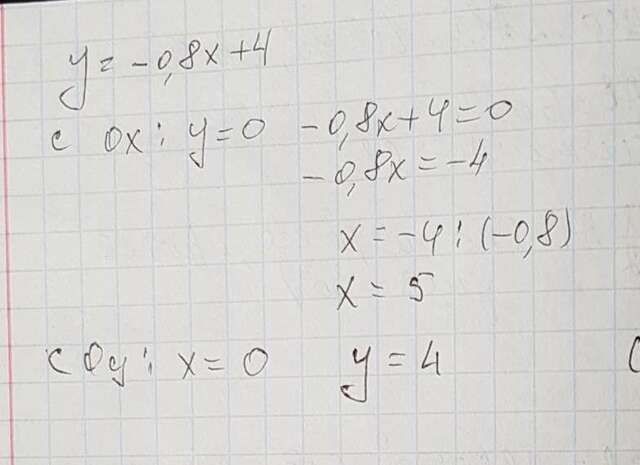 y = -0,8x+4
с Ox: y=0 -0,8x+4=0
-0,8x=-4
x=-4:(-0,8)
x=5
с Oy: x=0 y=4 (